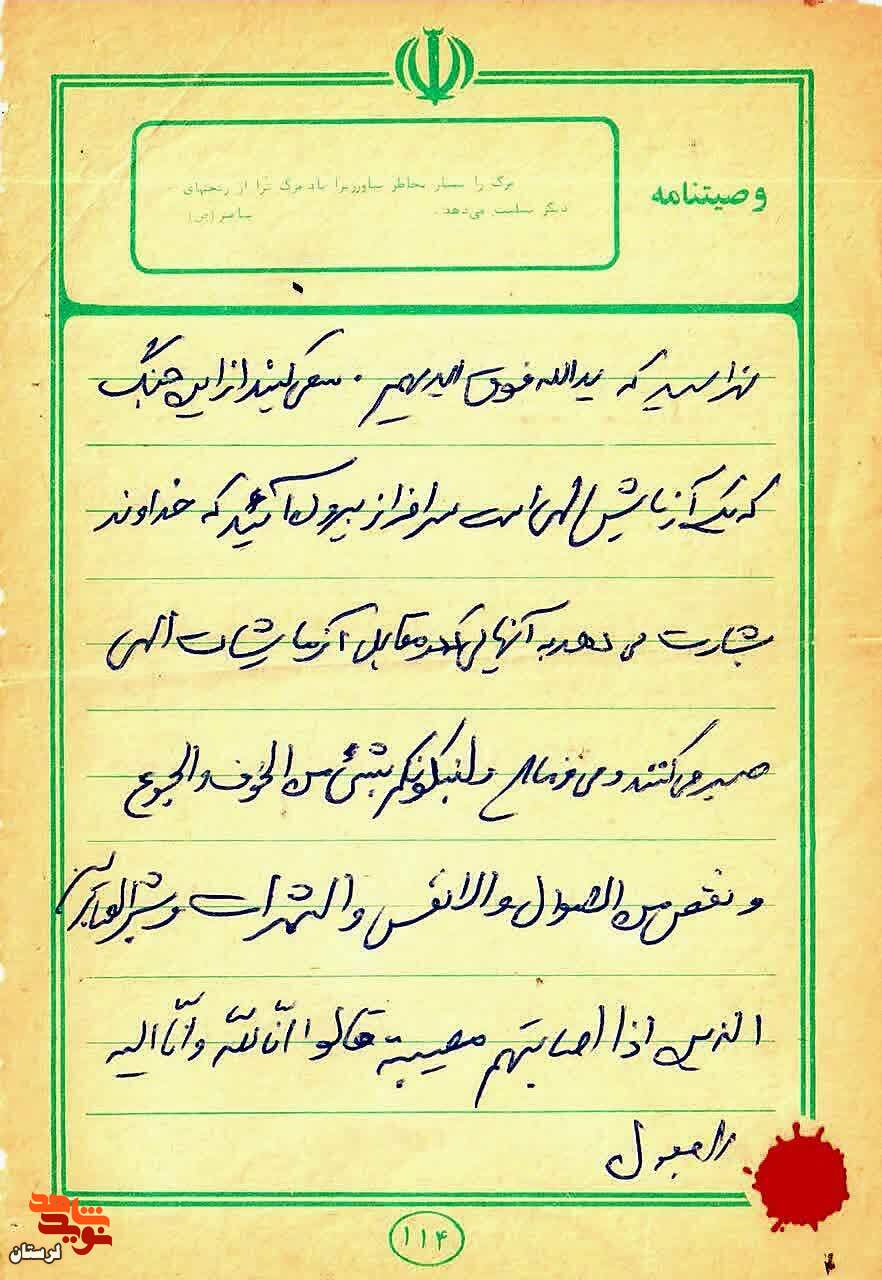 وصیتنامه
مرگ را بسیار بخاطر بیاورید زیرا یاد مرگ ترا از رنجهای
دیگر سلامت می‌دهد.
نهراسید که یدالله فوق ایدیهم . سعی کنید از این جنگ
که یک آزمایش الهی است سرافراز بیرون آئید که خداوند
بشارت می دهد به آنهائی که در مقابل آزمایشات الهی
صبر می کنند و می فرماید ولنبلونکم بشئ من الخوف والجوع
و نقص من الاموال والانفس والثمرات وبشر الصابرین
الذین اذا اصابتهم مصیبة قالوا انّا للّه وانّا الیه
راجعون
۱۱۴
نوید شاهد
لرستان